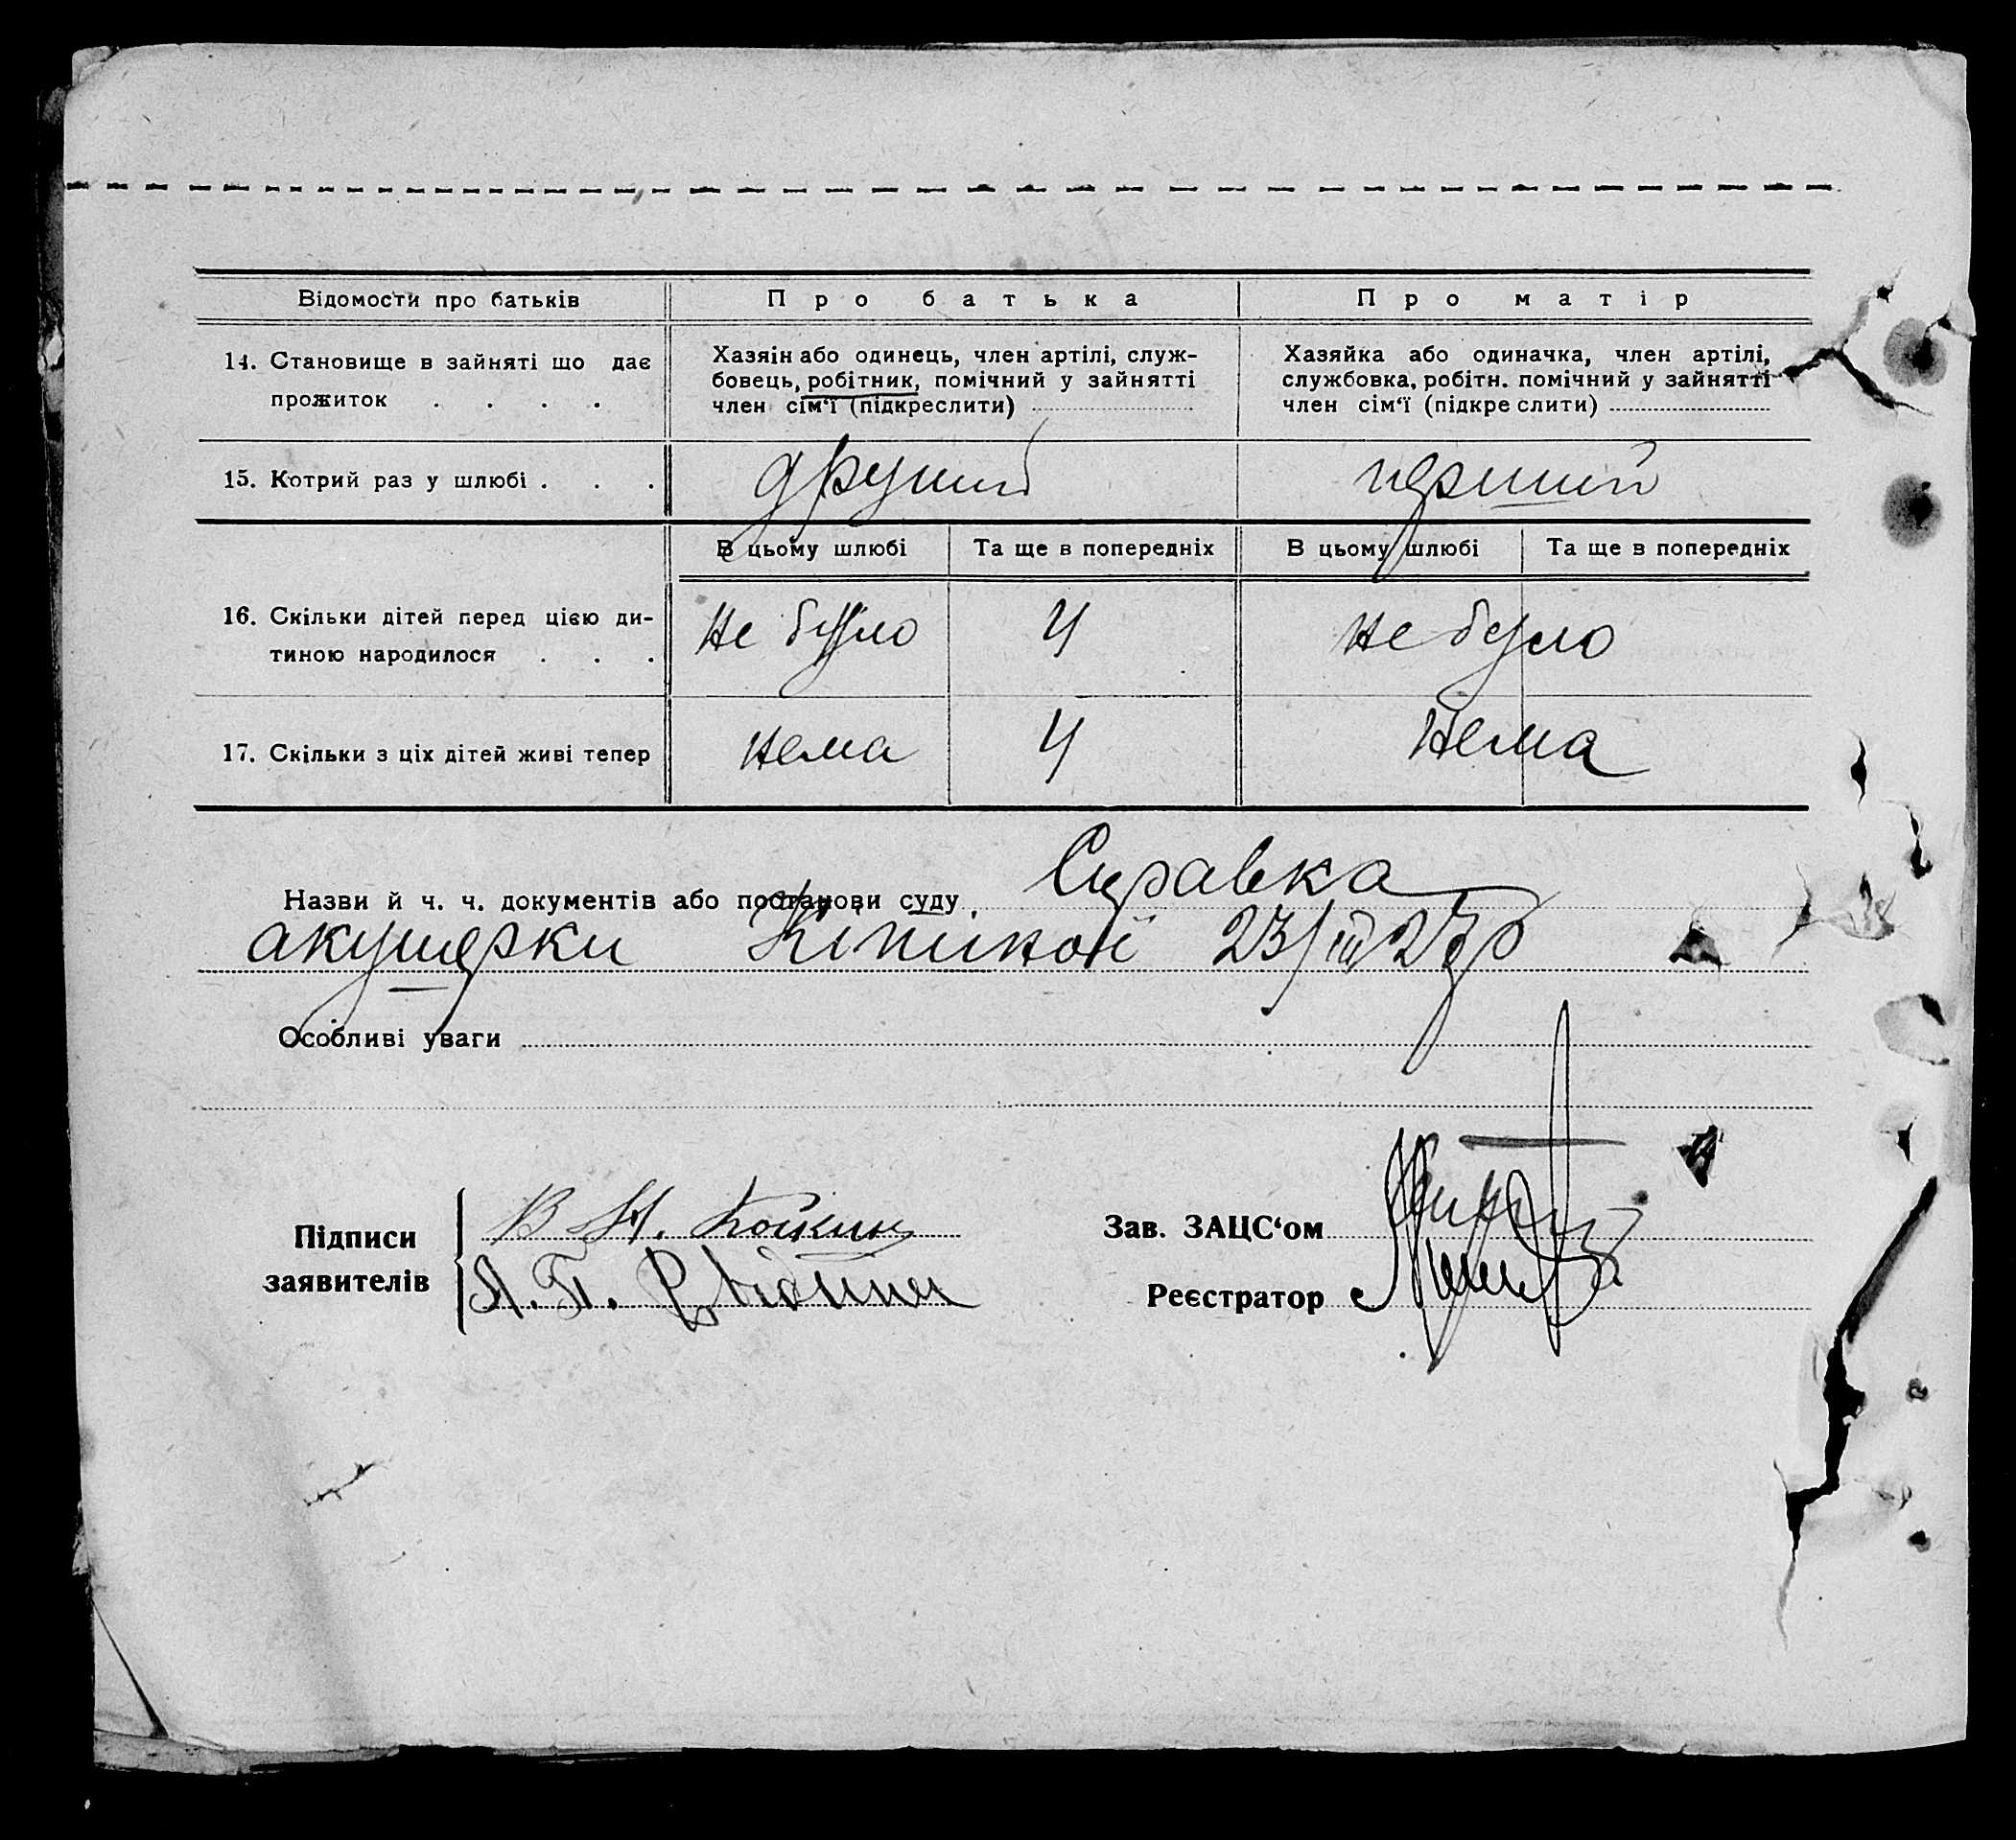 Відомости про батьків
Про батька
Про матір
14. Становище в зайняті що дає
прожиток . . . .
Хазяін або одинець, член артілі, служ-
бовець, робітник, помічний у зайнятті
член сім‘ї (підкреслити)
Хазяйка або одиначка, член артілі,
службовка, робітн. помічний у зайнятті
член сім‘ї (підкре слити)
15. Котрий раз у шлюбі . . .
другий
перший
В цьому шлюбі
Та ще в попередніх
В цьому шлюбі
Та ще в попередніх
16. Скільки дітей перед цією ди-
тиною народилося . . .
не було
4
не було
17. Скільки з ціх дітей живі тепер
нема
4
нема
Назви й ч. ч. документів або постанови суду Справка
акушерки 23/III 27 р
Особливі уваги
Підписи
заявителів
В
А. П.
Зав. ЗАЦС‘ом
Реєстратор